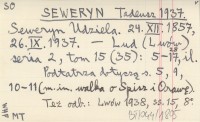 SO
SEWERYN Tadeusz 1937.
Seweryn Udziela. 24.XII.1857,
26.IX.1937. — Lud (Lwów)
seria 2, tom 15 (35): 5-17, il.
Podtatrza dotyczą s. 5, 9,
10-11 (m.in. walka o Spisz i Orawę).
Też odb.: Lwów 1938, ss. 15, 8°.
MT